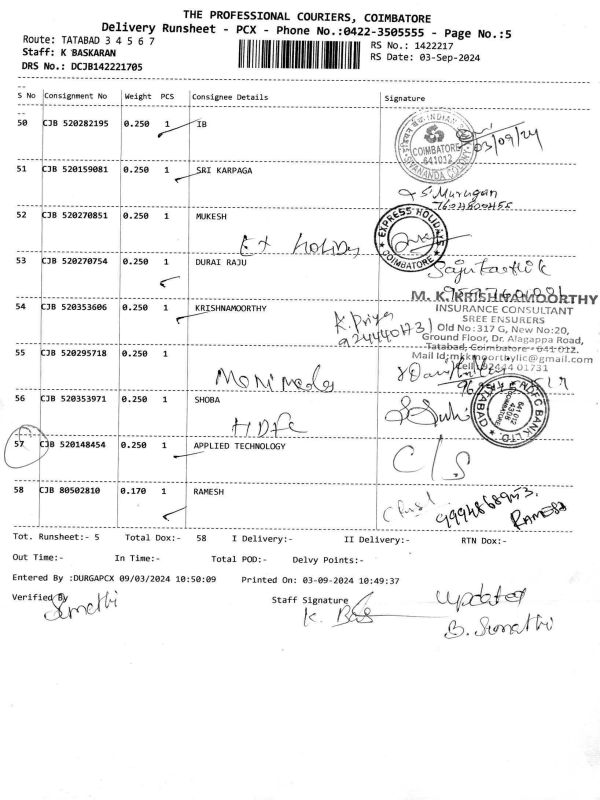 THE PROFESSIONAL COURIERS, COIMBATORE
Delivery Runsheet - PCX - Phone No.:0422-3505555 - Page No.:5
Route: TATABAD 3 4 5 6 7
RS No.: 1422217
Staff: K BASKARAN
RS Date: 03-Sep-2024
DRS No.: DCJB142221705
S No Consignment No Weight PCS Consignee Details Signature
50 CJB 520282195 0.250 1 IB
COIMBATORE
641012
03/09/24
51 CJB 520159081 0.250 1 SRI KARPAGA
S. Murugan
52 CJB 520270851 0.250 1 MUKESH
Ex Holiday
EXPRESS HOLIDAYS
COIMBATORE
53 CJB 520270754 0.250 1 DURAI RAJU
54 CJB 520353606 0.250 1 KRISHNAMOORTHY
K. Priya
M. K. KRISHNAMOORTHY
INSURANCE CONSULTANT
SREE ENSURERS
Old No: 317 G, New No:20,
Ground Floor, Dr. Alagappa Road,
Tatabad, Coimbatore - 641 012.
Mail Id:mkkmoorthylic@gmail.com
Cell: 92444 01731
55 CJB 520295718 0.250 1
56 CJB 520353971 0.250 1 SHOBA
HDFC
HDFC BANK LTD.
TATABAD
COIMBATORE
641 012
57 CJB 520148454 0.250 1 APPLIED TECHNOLOGY
C/S
58 CJB 80502810 0.170 1 RAMESH
RAMESH
Tot. Runsheet:- 5 Total Dox:- 58 I Delivery:- II Delivery:- RTN Dox:-
Out Time:- In Time:- Total POD:- Delvy Points:-
Entered By :DURGAPCX 09/03/2024 10:50:09 Printed On: 03-09-2024 10:49:37
Verified By Staff Signature
Sumathi
K. Bas
updated
B. Sumathi